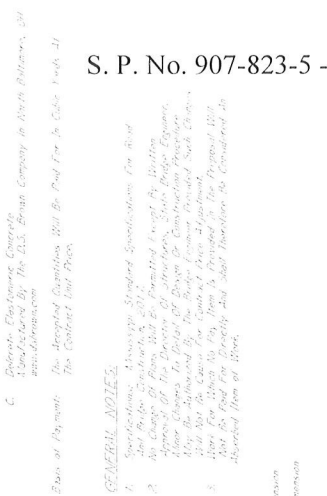 S. P. No. 907-823-5 -
C. Delcrete Elastomeric Concrete
Manufactured By The D.S. Brown Company in North Baltimore, OH
www.dsbrown.com
Basis of Payment: The Accepted Quantities Will Be Paid For in Cubic Yards At
The Contract Unit Price.
GENERAL NOTES:
1. Specifications: Mississippi Standard Specifications For Road
And Bridge Construction,
2. No Change Of Plans Will Be Permitted Except By Written
Approval Of The Director Of Structures, State Bridge Engineer.
Minor Changes In Detail Of Design Or Construction Procedure
May Be Authorized By The Bridge Engineer Provided Such Changes
Will Not Be Cause For Contract Price Adjustment.
3. Work For Which No Pay Item Is Provided In The Proposal Will
Not Be Paid For Directly And Shall Therefore Be Considered An
Absorbed Item of Work.